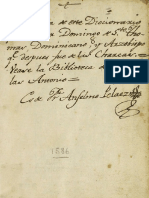 de este Diccionario
Domingo de Sto Tho
mas Dominicano y Arzobispo
qe despues fue de las Charcas.
Vease la Biblioteca de
las Antonio
Es de Fr. Anselmo
1586